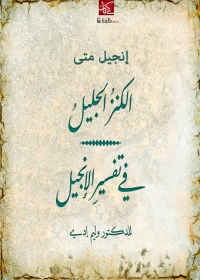 إنجيل متى
الكنز الجليل
في تفسير الإنجيل
للدكتور وليم إدي